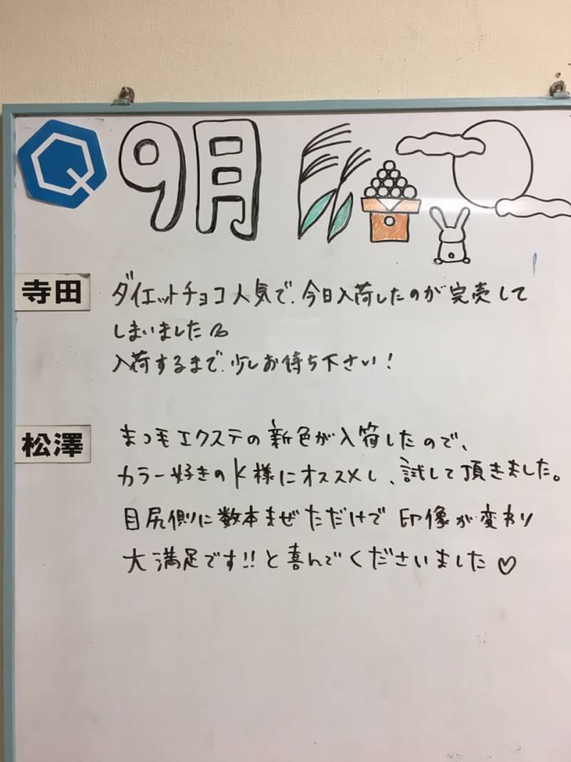 Q
9月
寺田
ダイエットチョコ人気で、今日入荷したのが完売して
しまいました
入荷するまで、少しお待ち下さい!
松澤
まつ毛エクステの新色が入荷したので、
カラー好きのK様にオススメし、試して頂きました。
目尻側に数本まぜただけで印像が変わり
大満足です!!と喜んでくださいました♡